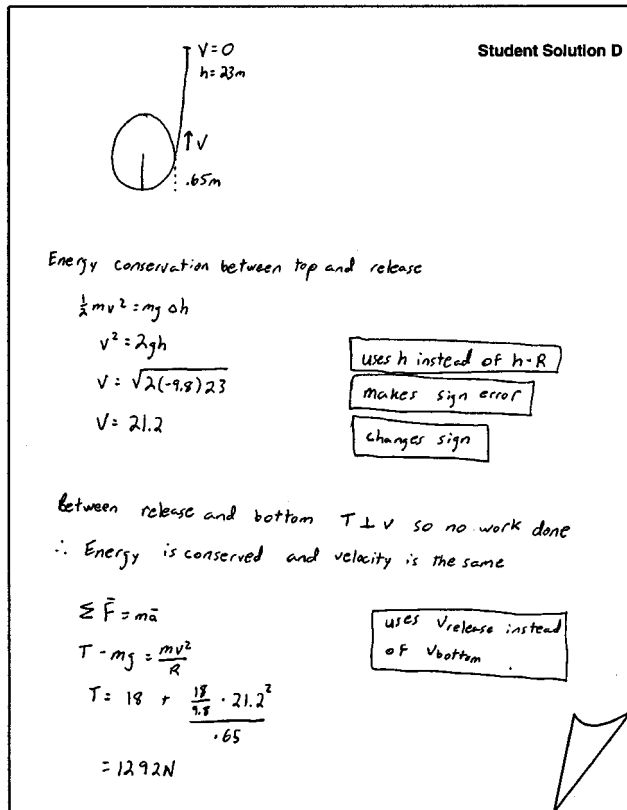 Student Solution D
V=0
h=23m
↑V
.65m
Energy conservation between top and release
½mv² = mg △h
v² = 2gh
V = √2(-9.8)23
V = 21.2
uses h instead of h-R
makes sign error
changes sign
Between release and bottom T ⊥ v so no work done
∴ Energy is conserved and velocity is the same
Σ F̄ = mā
T - mg = mv²/R
T = 18 + 18/9.8 · 21.2²/.65
= 1292N
uses Vrelease instead
of Vbottom .